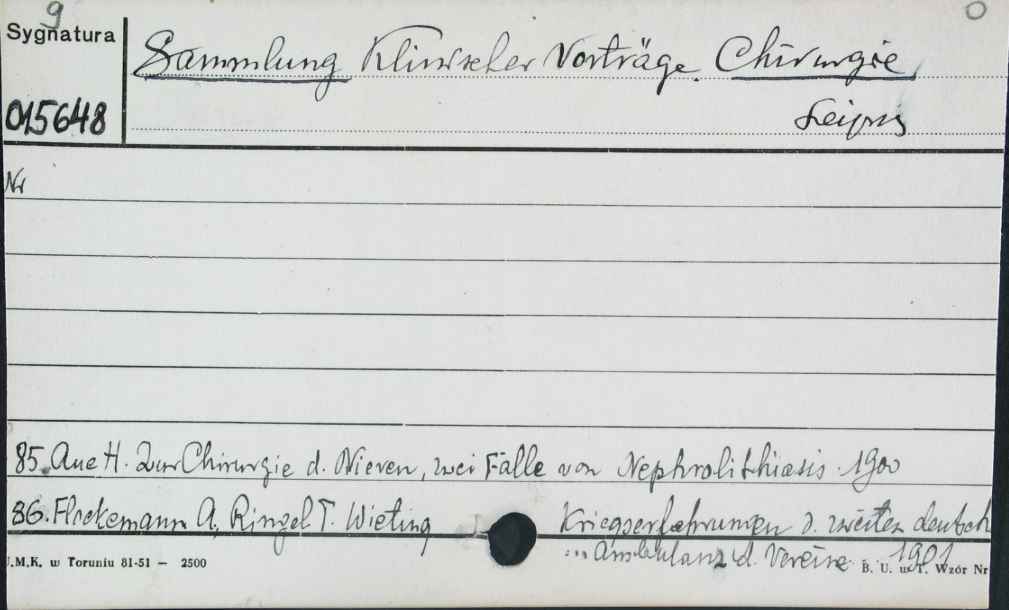 9
O
Sygnatura
Sammlung Klinischer Vorträge. Chirurgie,
015648
Leipzig
Nr
85. Aue H. Zur Chirurgie d. Nieren, zwei Fälle von Nephrolithiasis. 1900
86. Flockemann A, Ringel T. Wieting Kriegserfahrungen d. zweiten deutsch
... Ambulanz d. Vereine 1901
U.M.K. w Toruniu 81-51 — 2500
B. U. w T. Wzór Nr